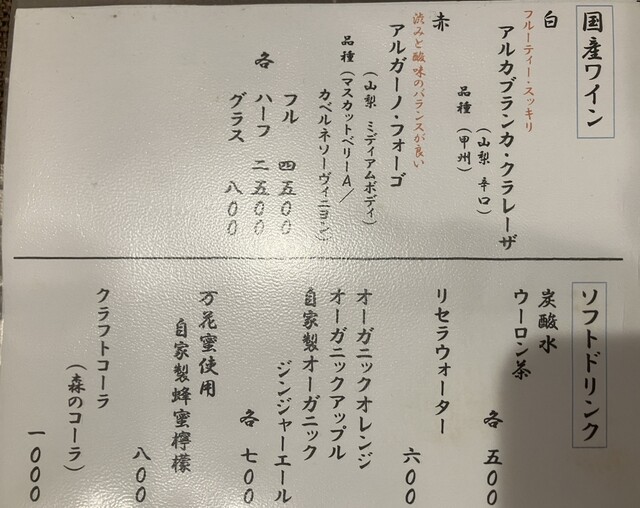 国産ワイン
白
フルーティー・スッキリ
アルカブランカ・クラレーザ
(山梨 辛口)
品種(甲州)
赤
渋みと酸味のバランスが良い
アルガーノ・フォーゴ
(山梨 ミディアムボディ)
品種(マスカットベリーA/
カベルネソーヴィニヨン)
各
フル 四五〇〇
ハーフ 二五〇〇
グラス 八〇〇
ソフトドリンク
炭酸水
ウーロン茶
各 五〇〇
リセラウォーター
六〇〇
オーガニックオレンジ
オーガニックアップル
自家製オーガニック
ジンジャーエール
各 七〇〇
万花蜜使用
自家製蜂蜜檸檬
八〇〇
クラフトコーラ
(森のコーラ)
一〇〇〇